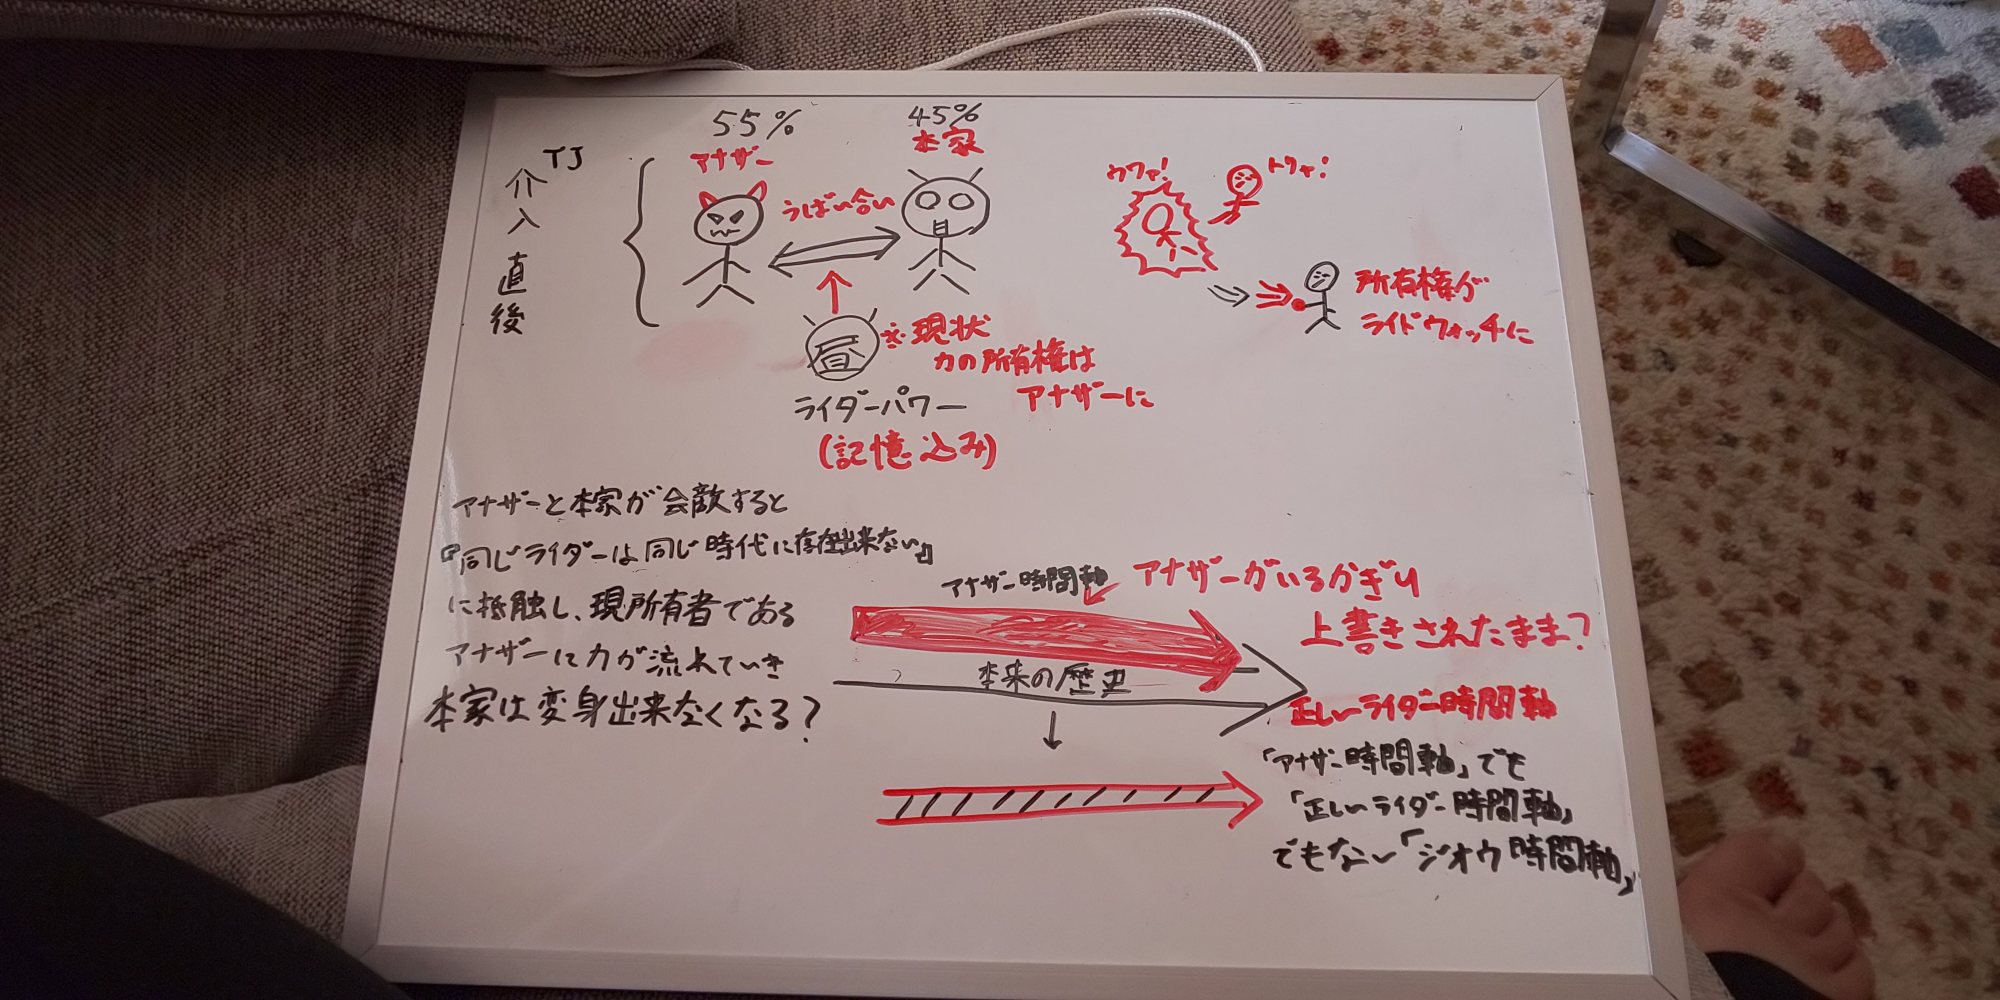 TJ
介入直後
55%
アナザー
45%
本家
うばい合い
昼
※現状
力の所有権は
アナザーに
ライダーパワー
(記憶込み)
ウワァ!
トリャ!
所有権が
ライドウォッチに
アナザーと本家が会敵すると
『同じライダーは同じ時代に存在出来ない』
に抵触し、現所有者である
アナザーに力が流れていき
本家は変身出来なくなる?
アナザー時間軸
アナザーがいるかぎり
上書きされたまま?
本来の歴史
正しいライダー時間軸
「アナザー時間軸」でも
「正しいライダー時間軸」
でもない「ジオウ時間軸」